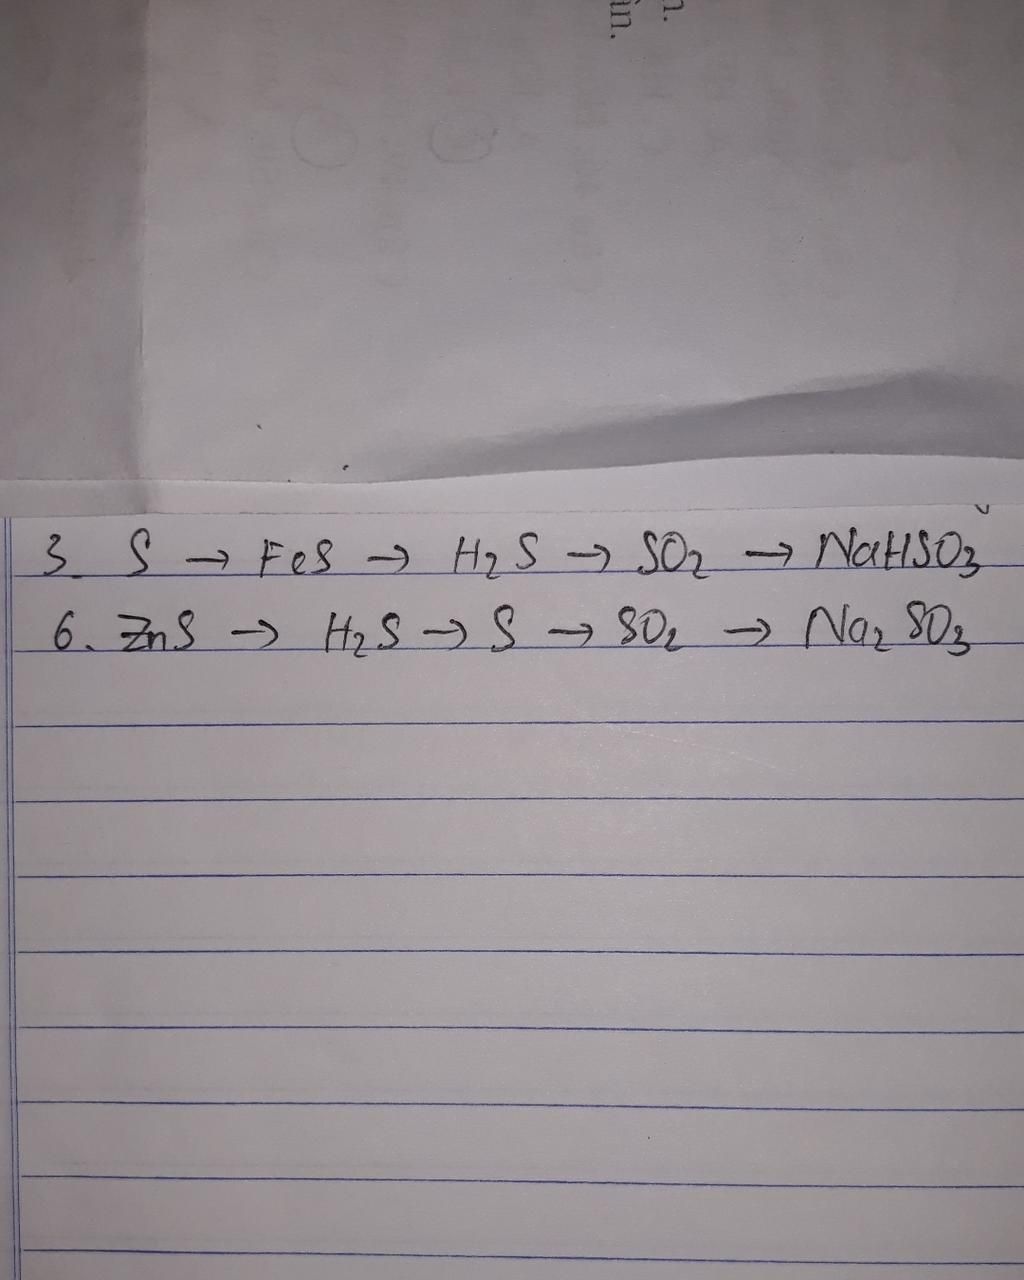 n.
in.
3. S → FeS → H₂S → SO₂ → NaHSO₃
6. ZnS → H₂S → S → SO₂ → Na₂SO₃